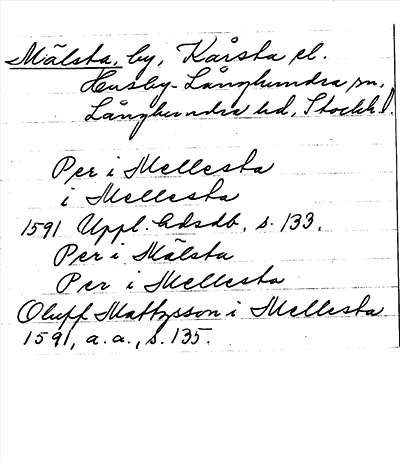 Mälsta, by, Kårsta el.
Husby-Långhundra sn,
Långhundra hd, Stockh. l.
Per i Mellesta
i Mellesta
1591 Uppl. Gdsdb, s. 133.
Per i Mälsta
Per i Mellesta
Oluff Mattzsson i Mellesta
1591, a.a., s. 135.